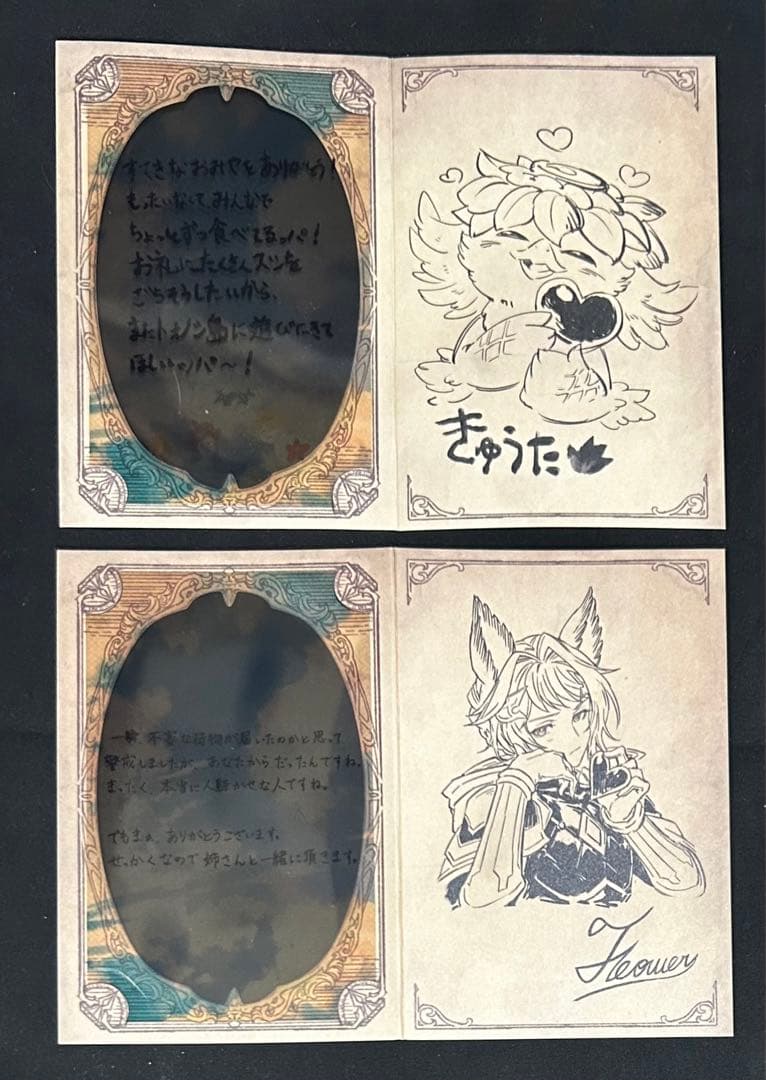 すてきなおみやをありがとう！
もったいなくて、みんなで
ちょっとずつ食べてるッパ！
お礼にたくさんスシを
ごちそうしたいから、
またトオノン島に遊びにきて
ほしいッパ〜！
きゅうた
一瞬、不審な荷物が届いたのかと思って
警戒しましたが、あなたからだったんですね。
まったく、本当に人騒がせな人ですね。
でもまぁ、ありがとうございます。
せっかくなので姉さんと一緒に頂きます。
Flower